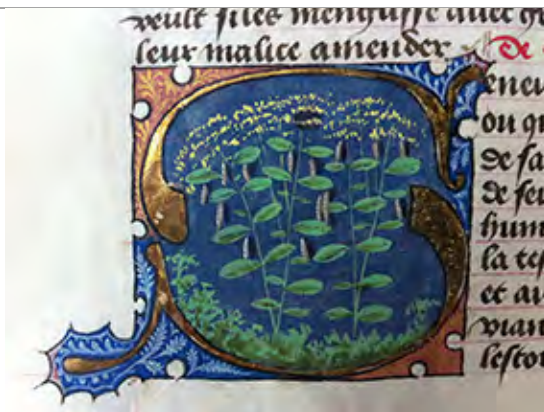 veult siles mengusse avec ge
leur malice amender De
Seneu
ou qu
de sa
de feu
hum
la tes
et au
vian
lesto